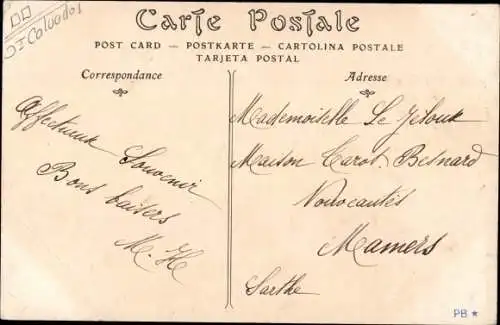 Dt Calvados
Carte Postale
POST CARD — POSTKARTE — CARTOLINA POSTALE
TARJETA POSTAL
Correspondance
Affectueux Souvenir
Bons baisers
M. H
Adresse
Mademoiselle Le
Maison Carot. Besnard
Nouveautés
Mamers
Sarthe
PB *